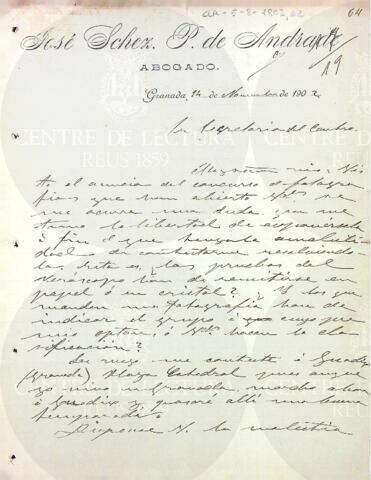 CLR-5-8-1902,02
64
José Schez. P. de Andrade
19
ABOGADO.
Granada, 14 de Noviembre de 1902
Sr. Secretario del Centro.
Muy señor mío: Vis
to el anuncio del concurso de fotogra
fías que han abierto Vds. se
me ocurre una duda, que me
tomo la libertad de exponerle
a fin de que tenga la amabili
dad de contestarme resolviendo
la. Esta es, ¿las pruebas del
Veroscopo han de remitirse en
papel ó en cristal? ¿Y los que
manden una fotografía han de
indicar el grupo á cuyo pre
mio optan, ó Vds. hacen la cla
sificación?
Le ruego me conteste á Guadix
(Granada) Plaza Catedral pues aunque
yo vivo en Granada, marcho ahora
á Guadix y pasaré allí una buena
temporadita
Dispense V. la molestia
CENTRE DE LECTURA
REUS 1859